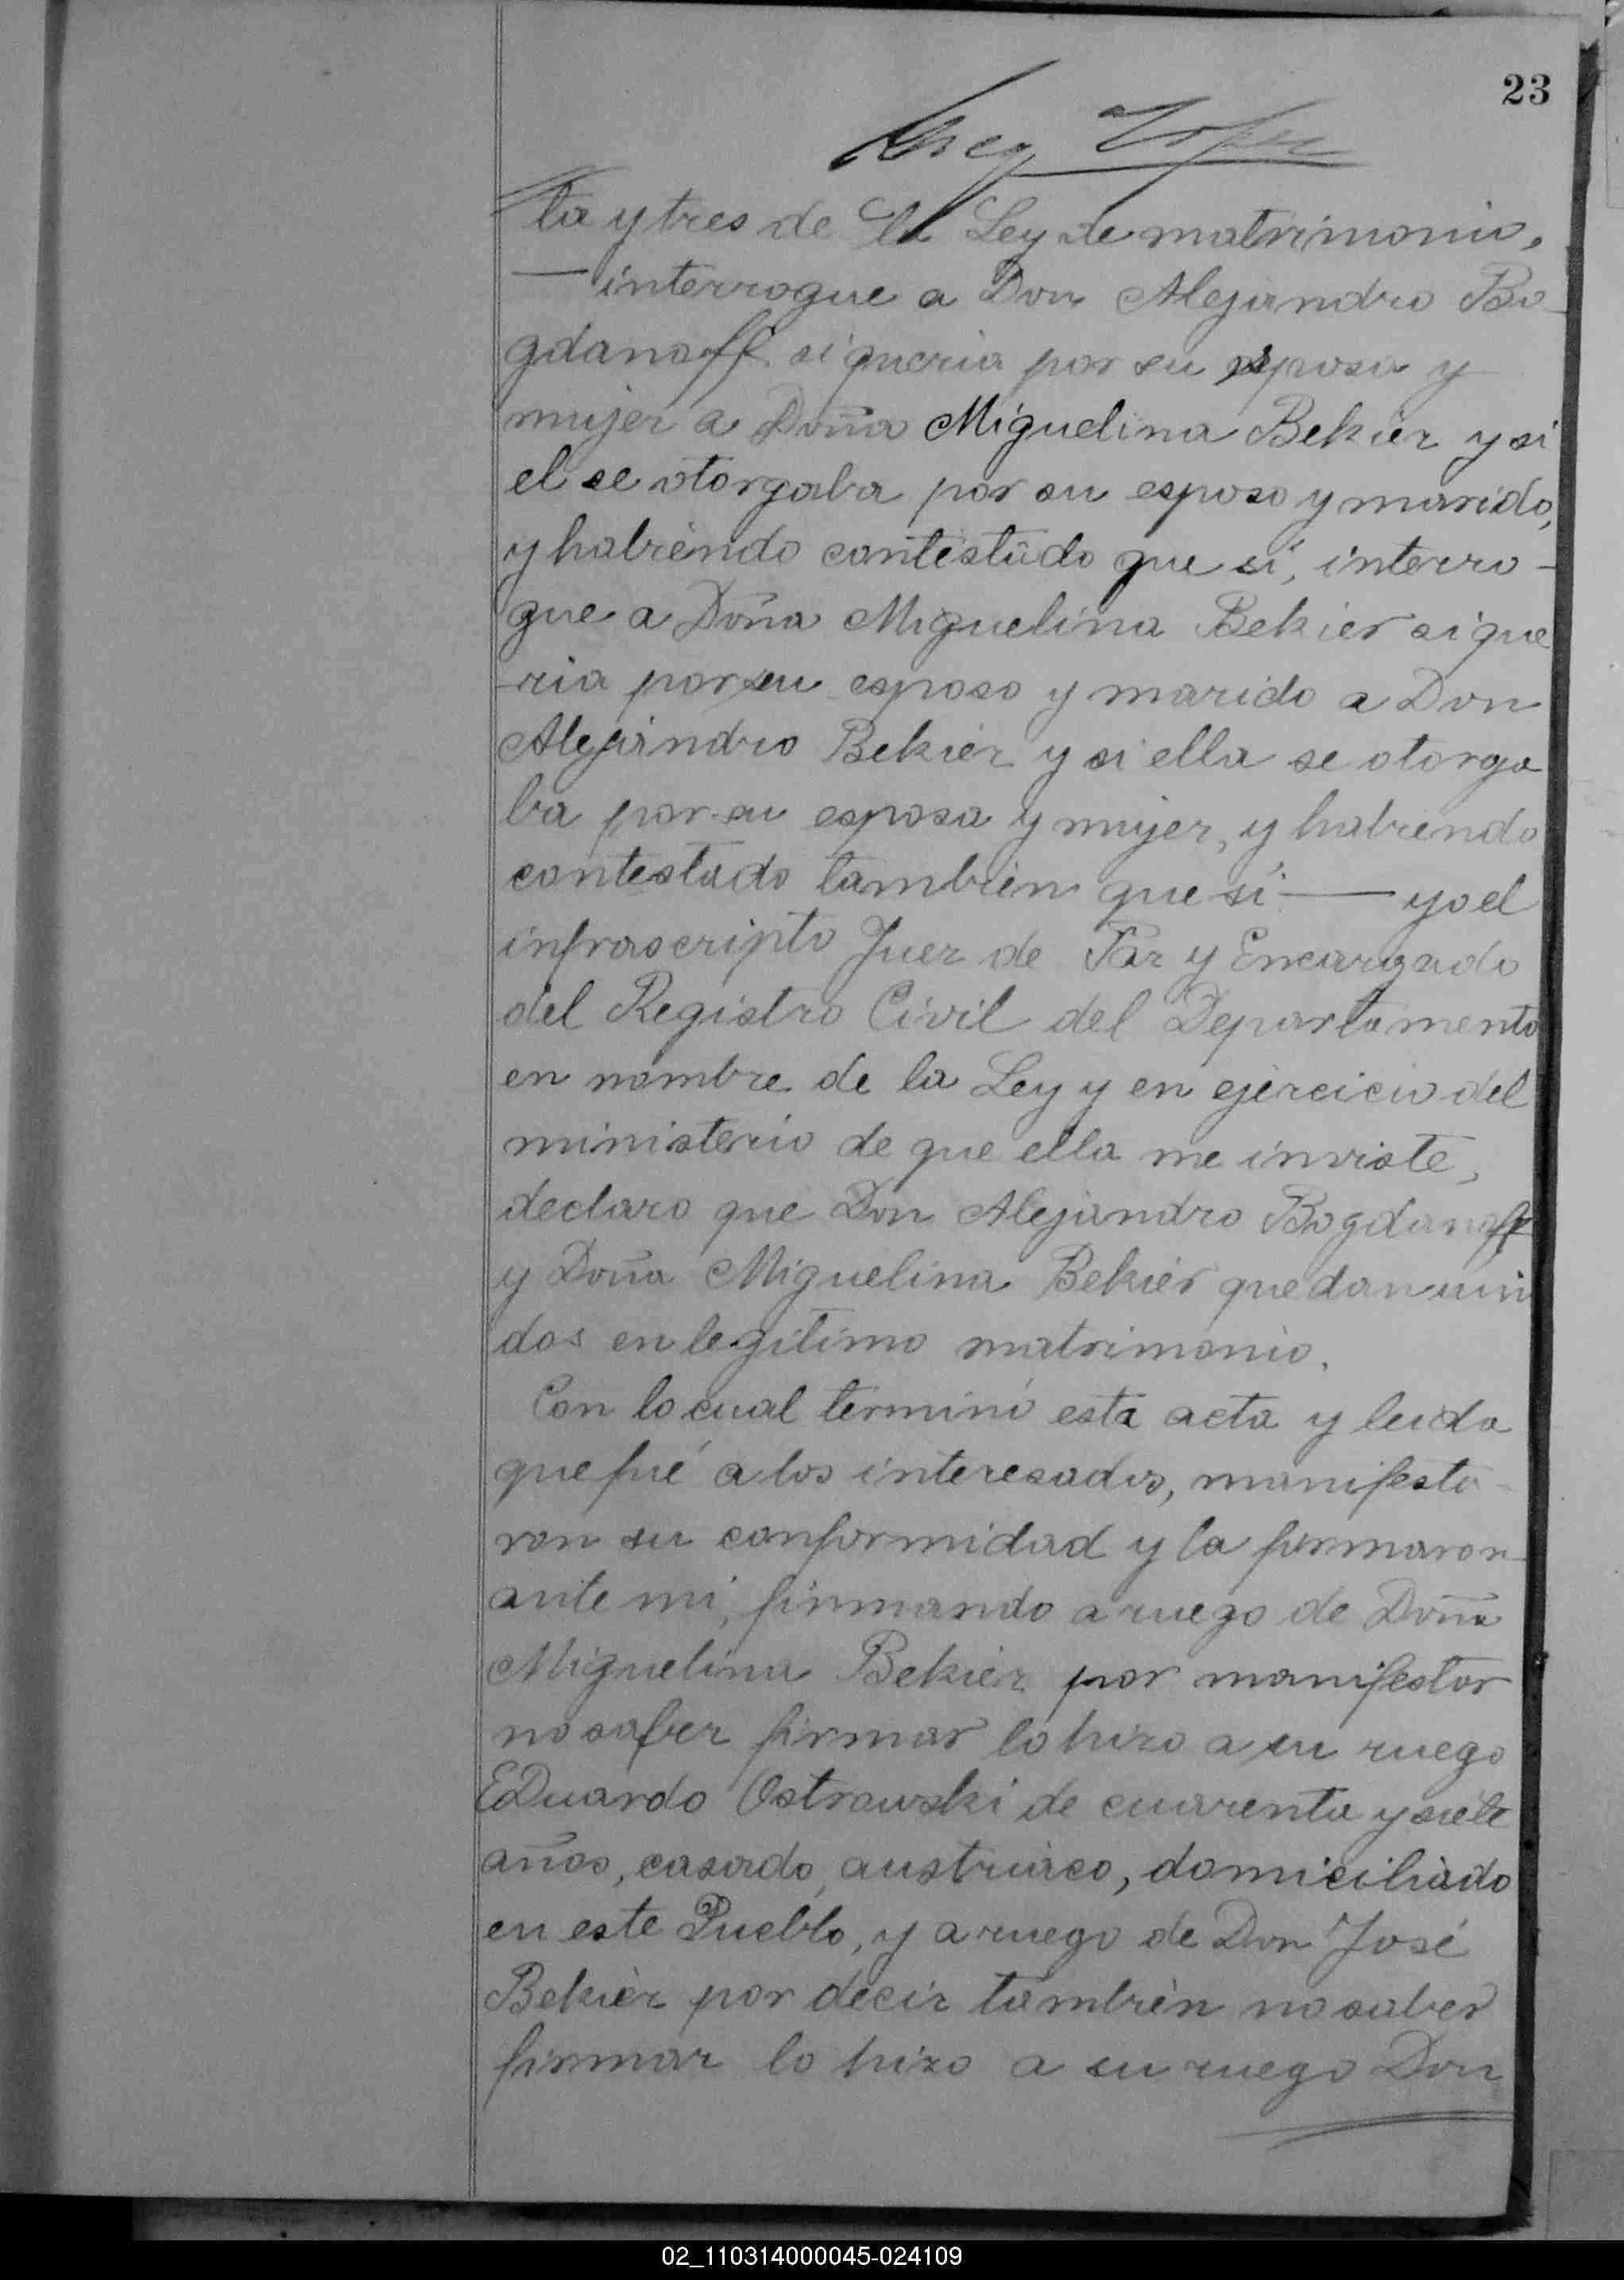 23
ta y tres de la Ley de matrimonio,
— interrogue a Don Alejandro Bo-
gdanoff si queria por su esposa y
mujer a Doña Miguelina Bekier y si
el se otorgaba por su esposo y marido,
y habiendo contestado que si, interro-
gue a Doña Miguelina Bekier si que
-ria por su esposo y marido a Don
Alejandro Bekier y si ella se otorga
ba por su esposa y mujer, y habiendo
contestado tambien que si — yo el
infrascripto Juez de Paz y Encargado
del Registro Civil del Departamento
en nombre de la Ley y en ejercicio del
ministerio de que ella me inviste,
declaro que Don Alejandro Bogdanoff
y Doña Miguelina Bekier quedan uni
dos en legitimo matrimonio.
Con lo cual terminó esta acta y leida
que fué a los interesados, manifesta-
ron su conformidad y la firmaron
ante mi, firmando a ruego de Doña
Miguelina Bekier por manifestar
no saber firmar lo hizo a su ruego
EDuardo Ostrowski de cuarenta y siete
años, casado, austriaco, domiciliado
en este Pueblo, y a ruego de Don José
Bekier por decir tambien no saber
firmar lo hizo a su ruego Don
02_110314000045-024109